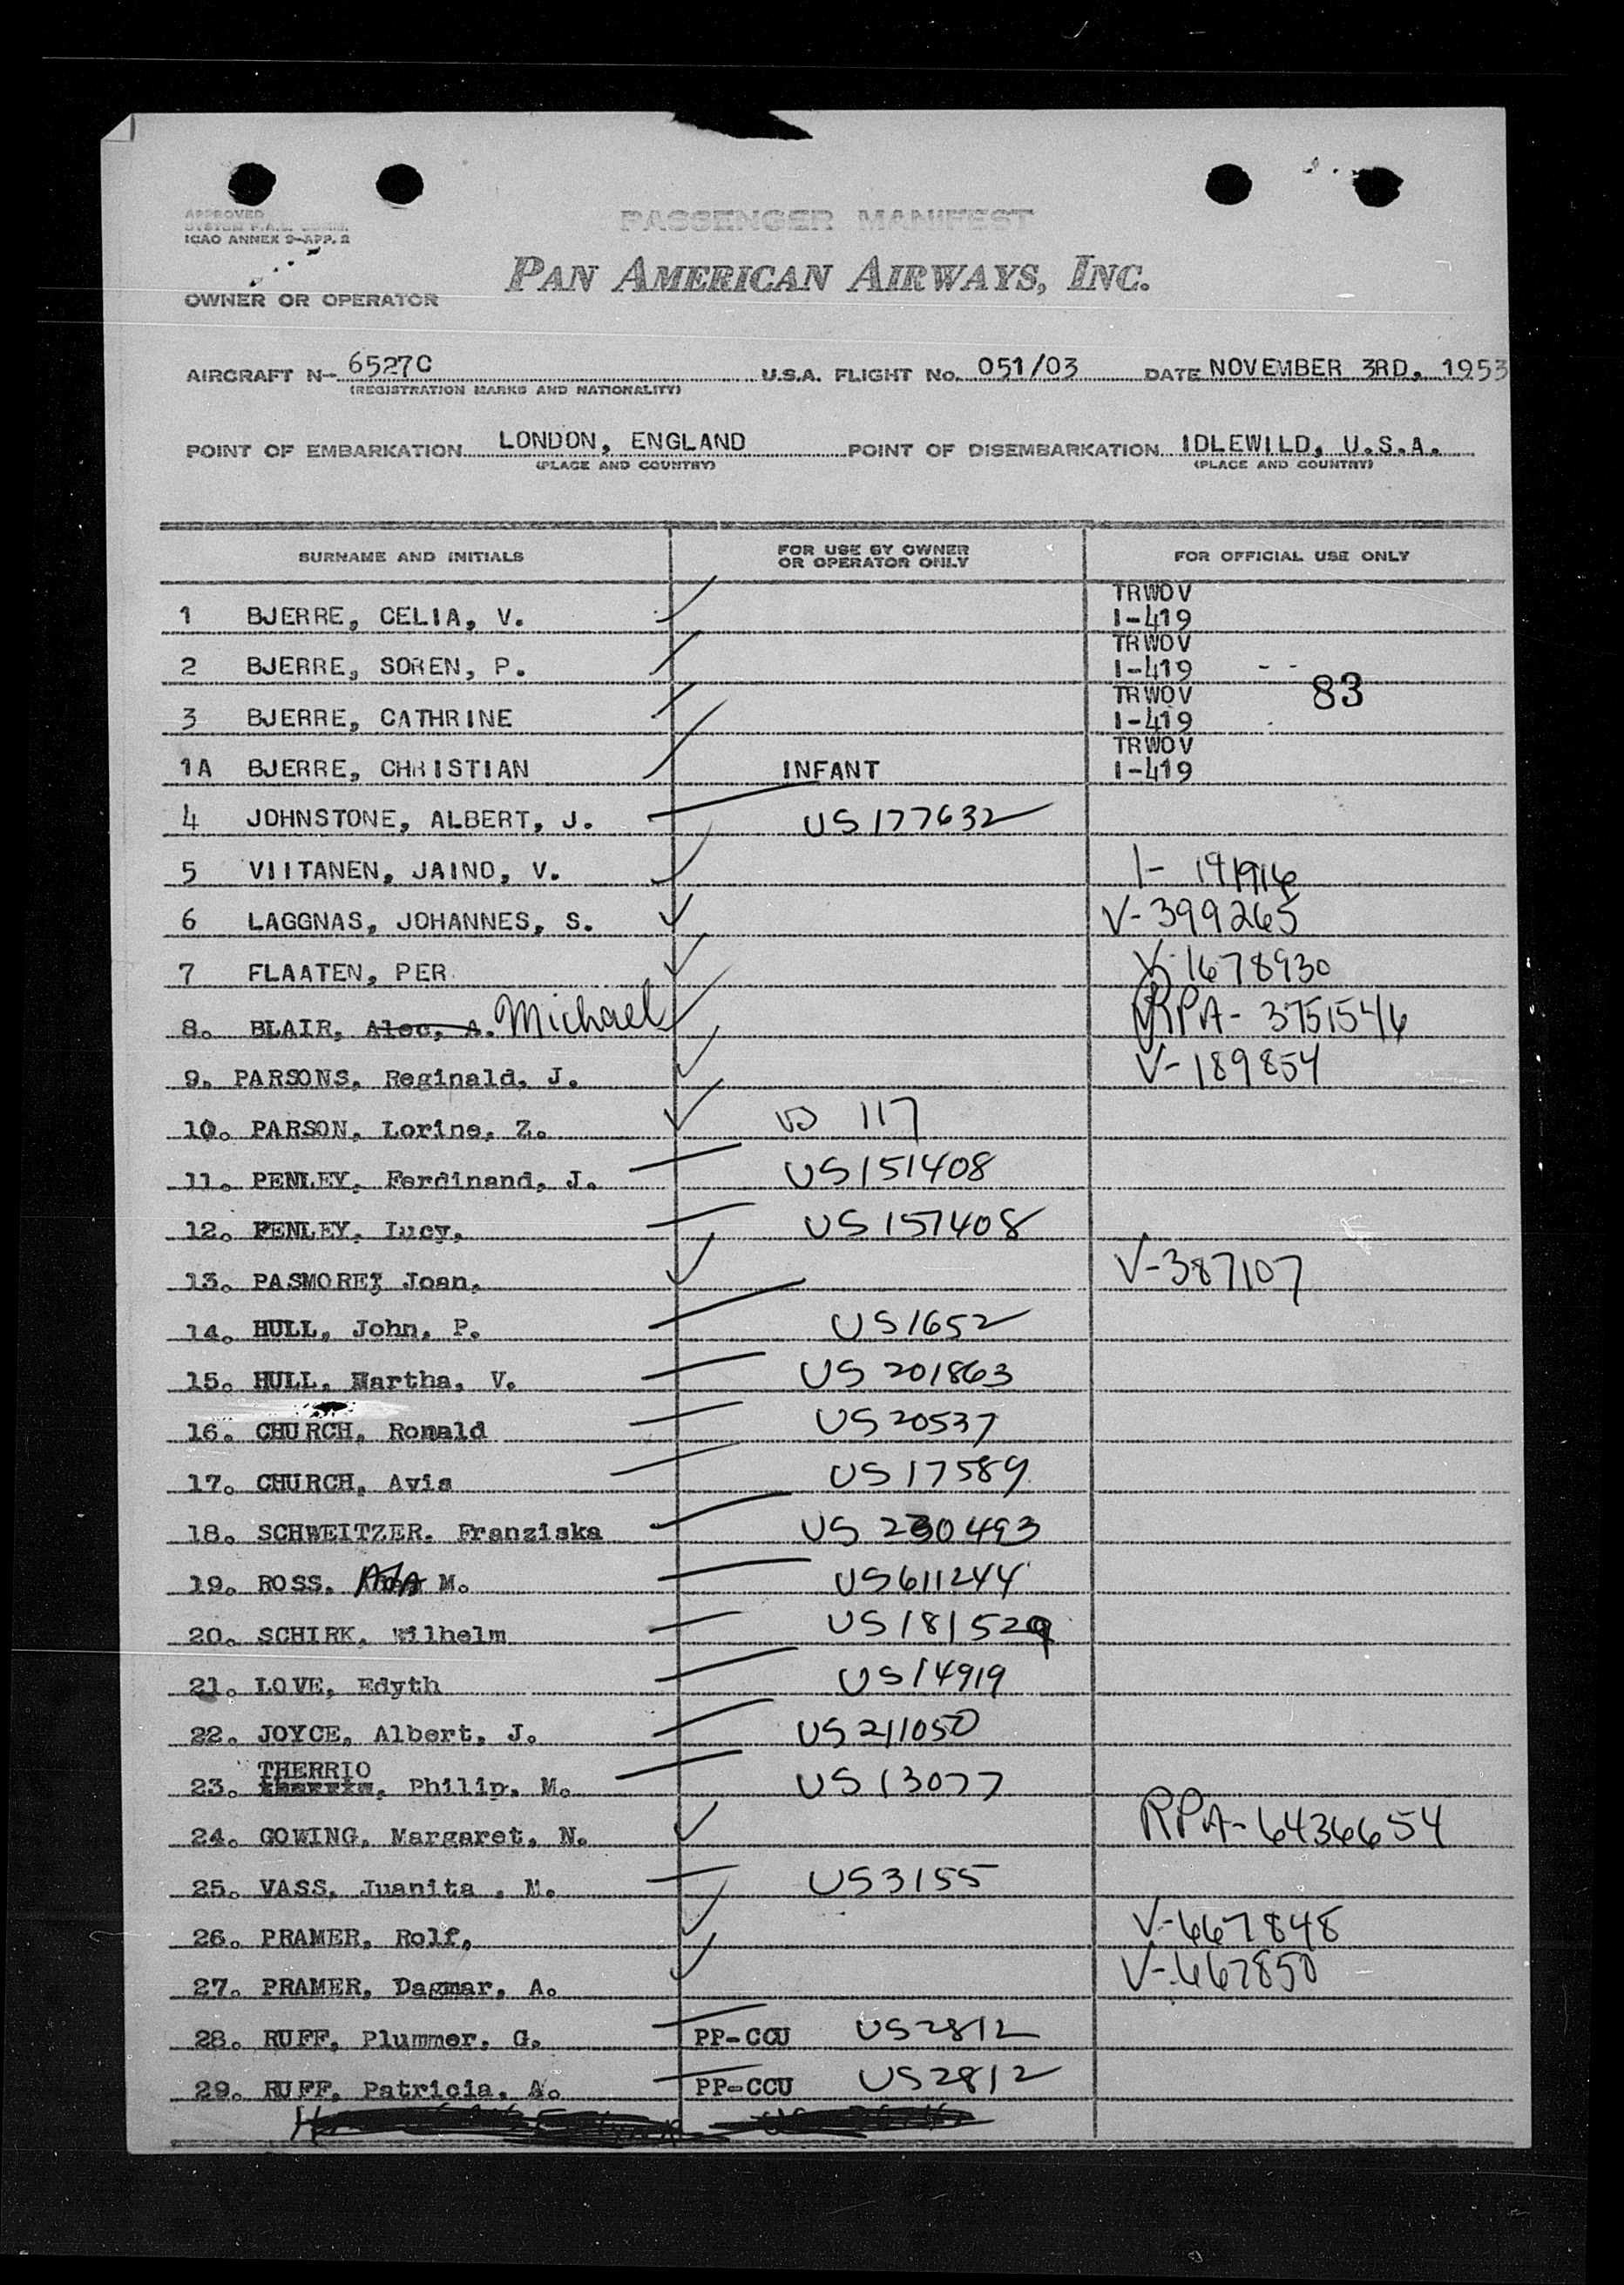 APPROVED
SYSTEM F.A.L. COMM.
ICAO ANNEX 9-APP. 2
PASSENGER MANIFEST
PAN AMERICAN AIRWAYS, INC.
OWNER OR OPERATOR
AIRCRAFT N- 6527C U.S.A. FLIGHT No. 051/03 DATE NOVEMBER 3RD, 1953
(REGISTRATION MARKS AND NATIONALITY)
POINT OF EMBARKATION LONDON, ENGLAND POINT OF DISEMBARKATION IDLEWILD, U.S.A.
(PLACE AND COUNTRY) (PLACE AND COUNTRY)
SURNAME AND INITIALS FOR USE BY OWNER OR OPERATOR ONLY FOR OFFICIAL USE ONLY
TRWOV
1 BJERRE, CELIA, V. I-419
TRWOV
2 BJERRE, SOREN, P. I-419
TRWOV 83
3 BJERRE, CATHRINE I-419
TRWOV
1A BJERRE, CHRISTIAN INFANT I-419
4 JOHNSTONE, ALBERT, J. US 177632
5 VIITANEN, JAINO, V. I-
6 LAGGNAS, JOHANNES, S. V-399265
7 FLAATEN, PER. V-1678930
8. BLAIR, Alec, A. Michael RPA-3751546
9. PARSONS, Reginald, J. V-189854
10. PARSON, Lorine, Z. 117
11. PENLEY, Ferdinand, J. US 151408
12. PENLEY, Lucy, US 151408
13. PASMORE, Joan, V-387107
14. HULL, John, P. US 1652
15. HULL, Martha, V. US 201863
16. CHURCH, Ronald US 20537
17. CHURCH, Avis US 17589
18. SCHWEITZER, Franziska US 230493
19. ROSS, M. US 611244
20. SCHIRK, Wilhelm US 181529
21. LOVE, Edyth US 14919
22. JOYCE, Albert, J. US 211050
THERRIO
23. Philip, M. US 13077
24. GOWING, Margaret, N. RPA-6436654
25. VASS, Juanita, M. US 3155
26. PRAMER, Rolf, V-667848
27. PRAMER, Dagmar, A. V-667850
28. RUFF, Plummer, G. PP-CCU US 2812
29. RUFF, Patricia, A. PP-CCU US 2812